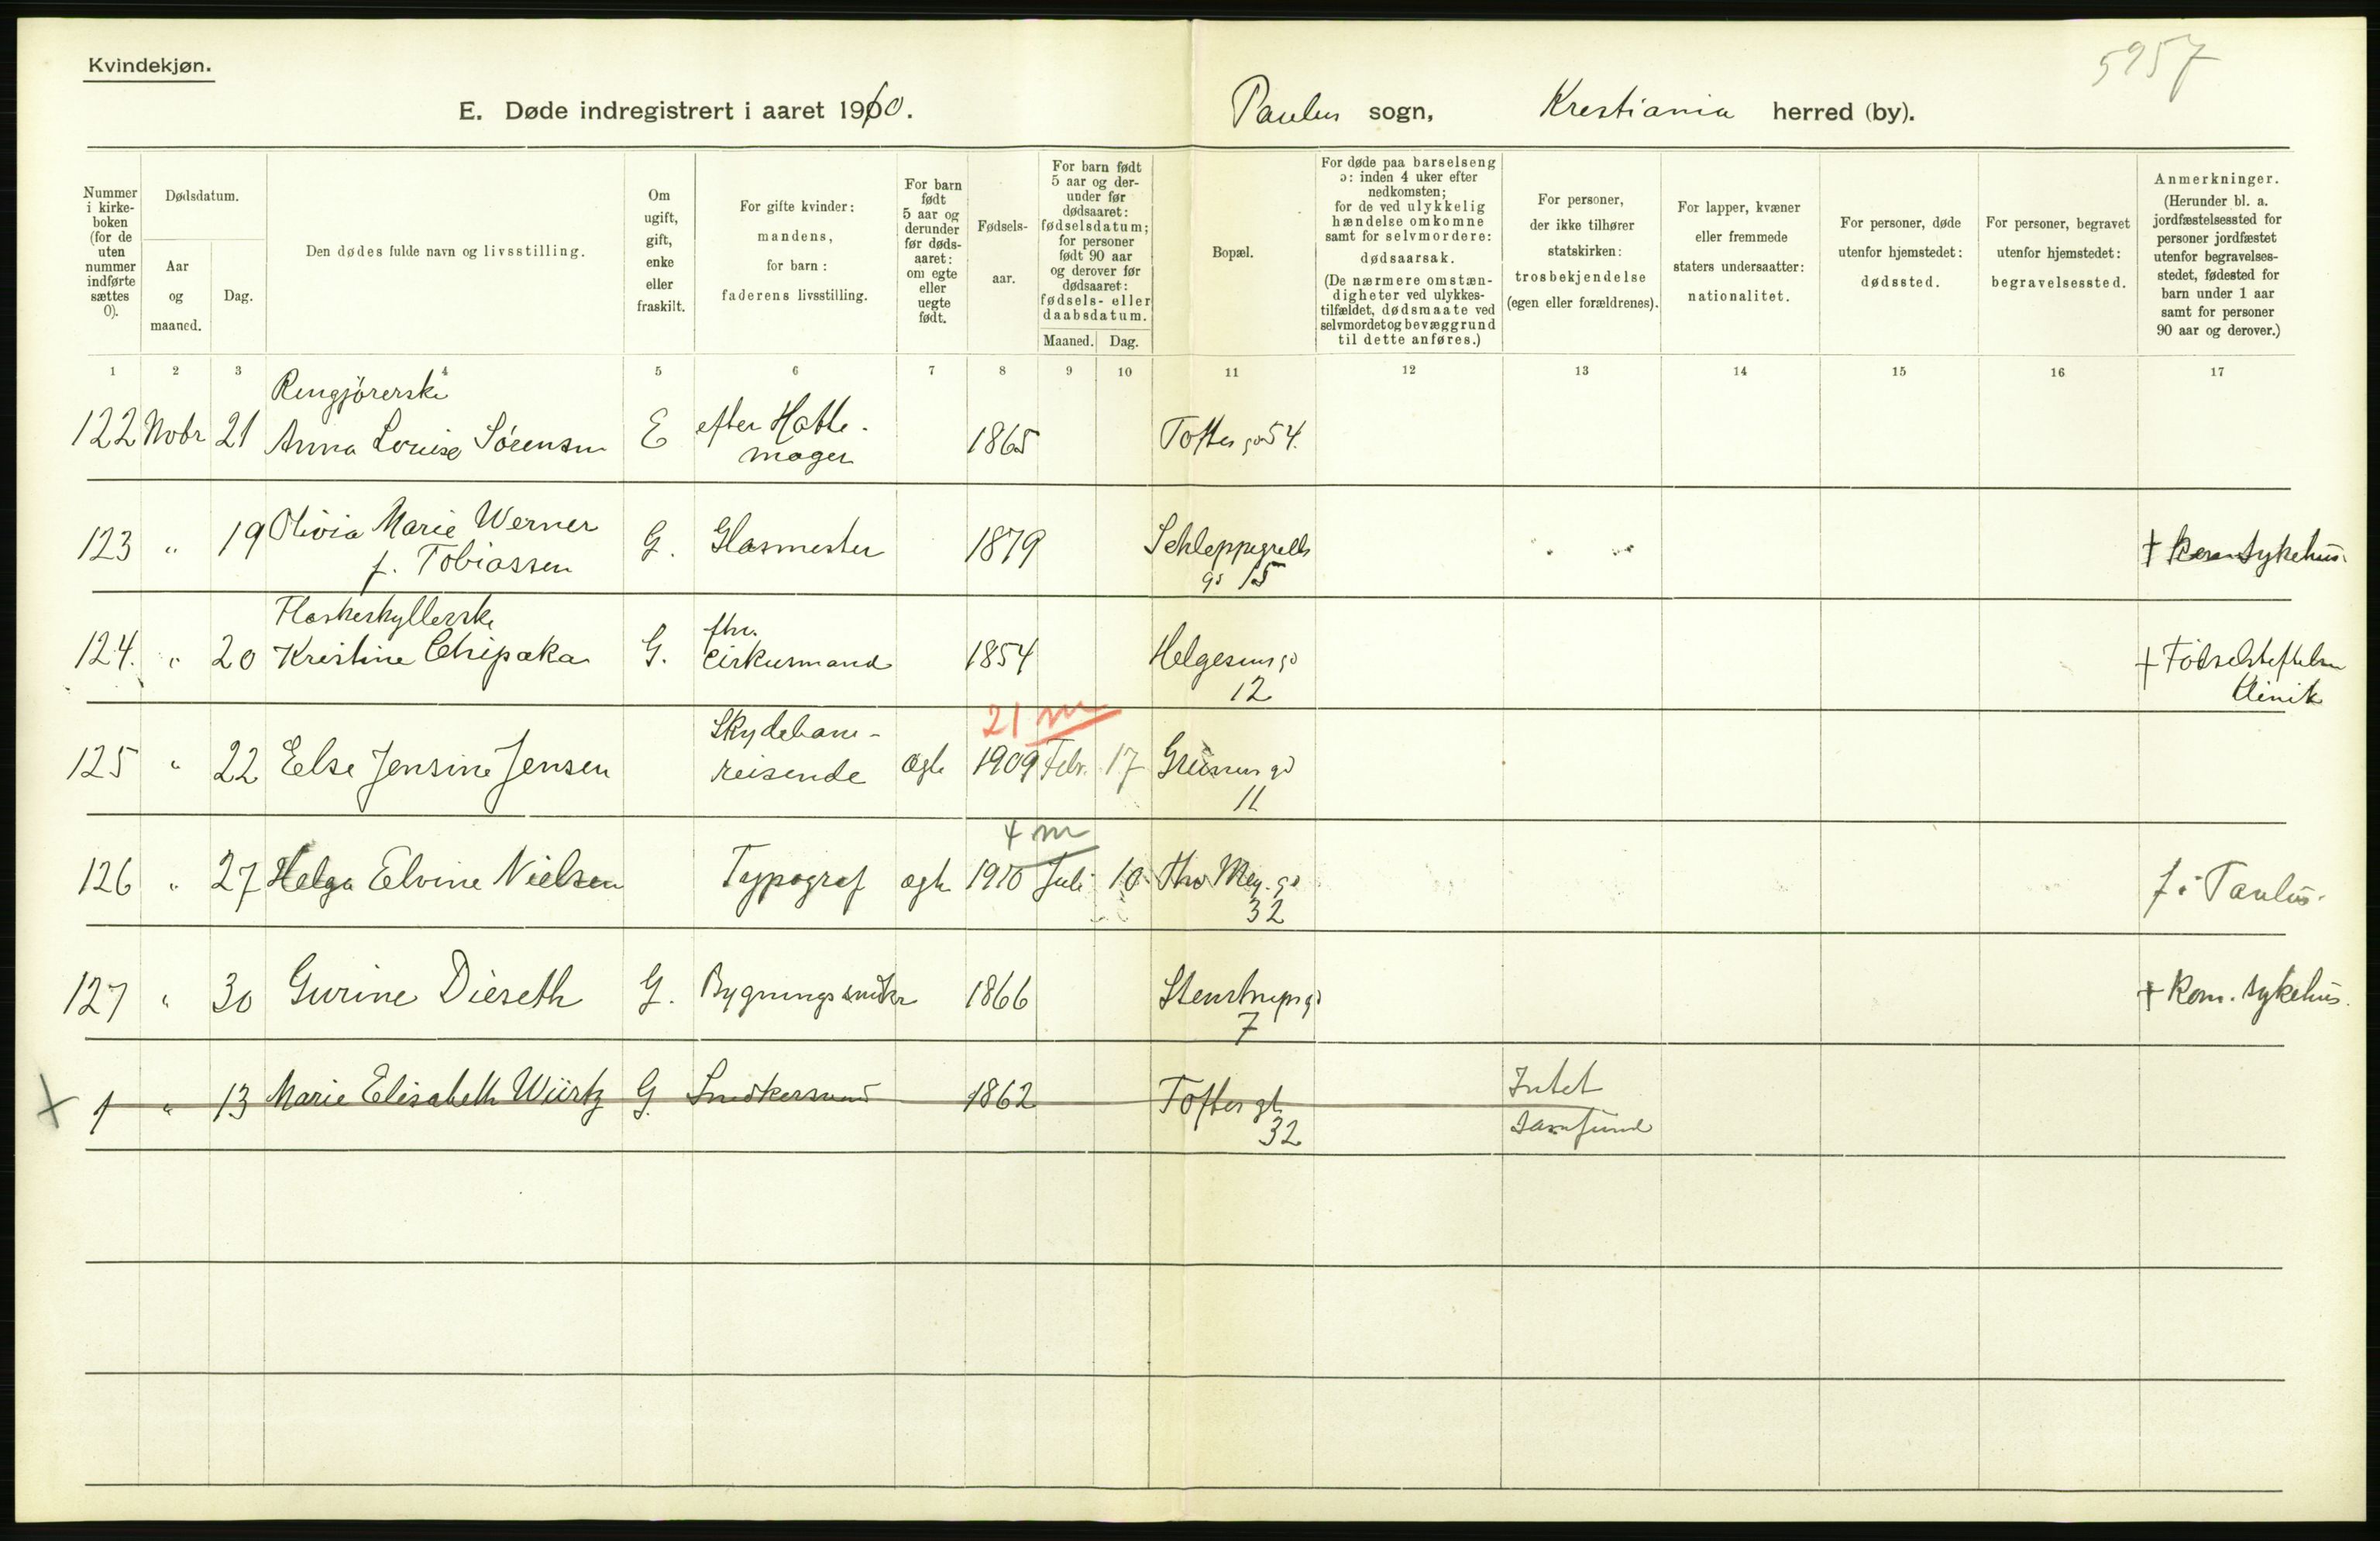 Kvindekjøn.
5957
E. Døde indregistrert i aaret 1910.
Paulus sogn, Krestiania herred (by).
Nummer i kirke-boken (for de uten nummer indførte sættes 0).
Dødsdatum.
Aar og maaned.
Dag.
Den dødes fulde navn og livsstilling.
Om ugift, gift, enke eller fraskilt.
For gifte kvinder: mandens, for barn: faderens livsstilling.
For barn født 5 aar og derunder før døds-aaret: om egte eller uegte født.
Fødsels-aar.
For barn født 5 aar og der-under før dødsaaret: fødselsdatum; for personer født 90 aar og derover før dødsaaret: fødsels- eller daabsdatum.
Maaned. Dag.
Bopæl.
For døde paa barselseng ɔ: inden 4 uker efter nedkomsten; for de ved ulykkelig hændelse omkomne samt for selvmordere: dødsaarsak. (De nærmere omstæn-digheter ved ulykkes-tilfældet, dødsmaate ved selvmordet og bevæggrund til dette anføres.)
For personer, der ikke tilhører statskirken: trosbekjendelse (egen eller forældrenes).
For lapper, kvæner eller fremmede staters undersaatter: nationalitet.
For personer, døde utenfor hjemstedet: dødssted.
For personer, begravet utenfor hjemstedet: begravelsessted.
Anmerkninger. (Herunder bl. a. jordfæstelsessted for personer jordfæstet utenfor begravelses-stedet, fødested for barn under 1 aar samt for personer 90 aar og derover.)
1 2 3 4 5 6 7 8 9 10 11 12 13 14 15 16 17
Rengjörerske
122 Nobr 21 Anna Louise Sörensen E efter Hatte-mager 1865 Toftes gd 54.
123 " 19 Olivia Marie Werner f. Tobiassen G. Glasmester 1879 Schleppegrells gd 15 † Kom sykehus.
Flaskeskyllerske
124. " 20 Kristine Chipaka G. fhv. Cirkusmand 1854 Helgesens gd 12 † Födselsstiftelsen Klinik
21 m
125 " 22 Else Jensine Jensen Skydebane-reisende ægte 1909 Febr. 17 Grüners gd 11
4 m
126 " 27 Helga Elvine Nielsen Typograf ægte 1910 Juli 10 Thv Mey. gd 32 f i Paulus.
127 " 30 Gurine Dieseth G. Bygningssnedker 1866 Stenstrups gd 7 † Kom. sykehus.
" 13 Marie Elisabeth Würtz G. Snedkersvend 1862 Toftes gt 32 Intet samfund